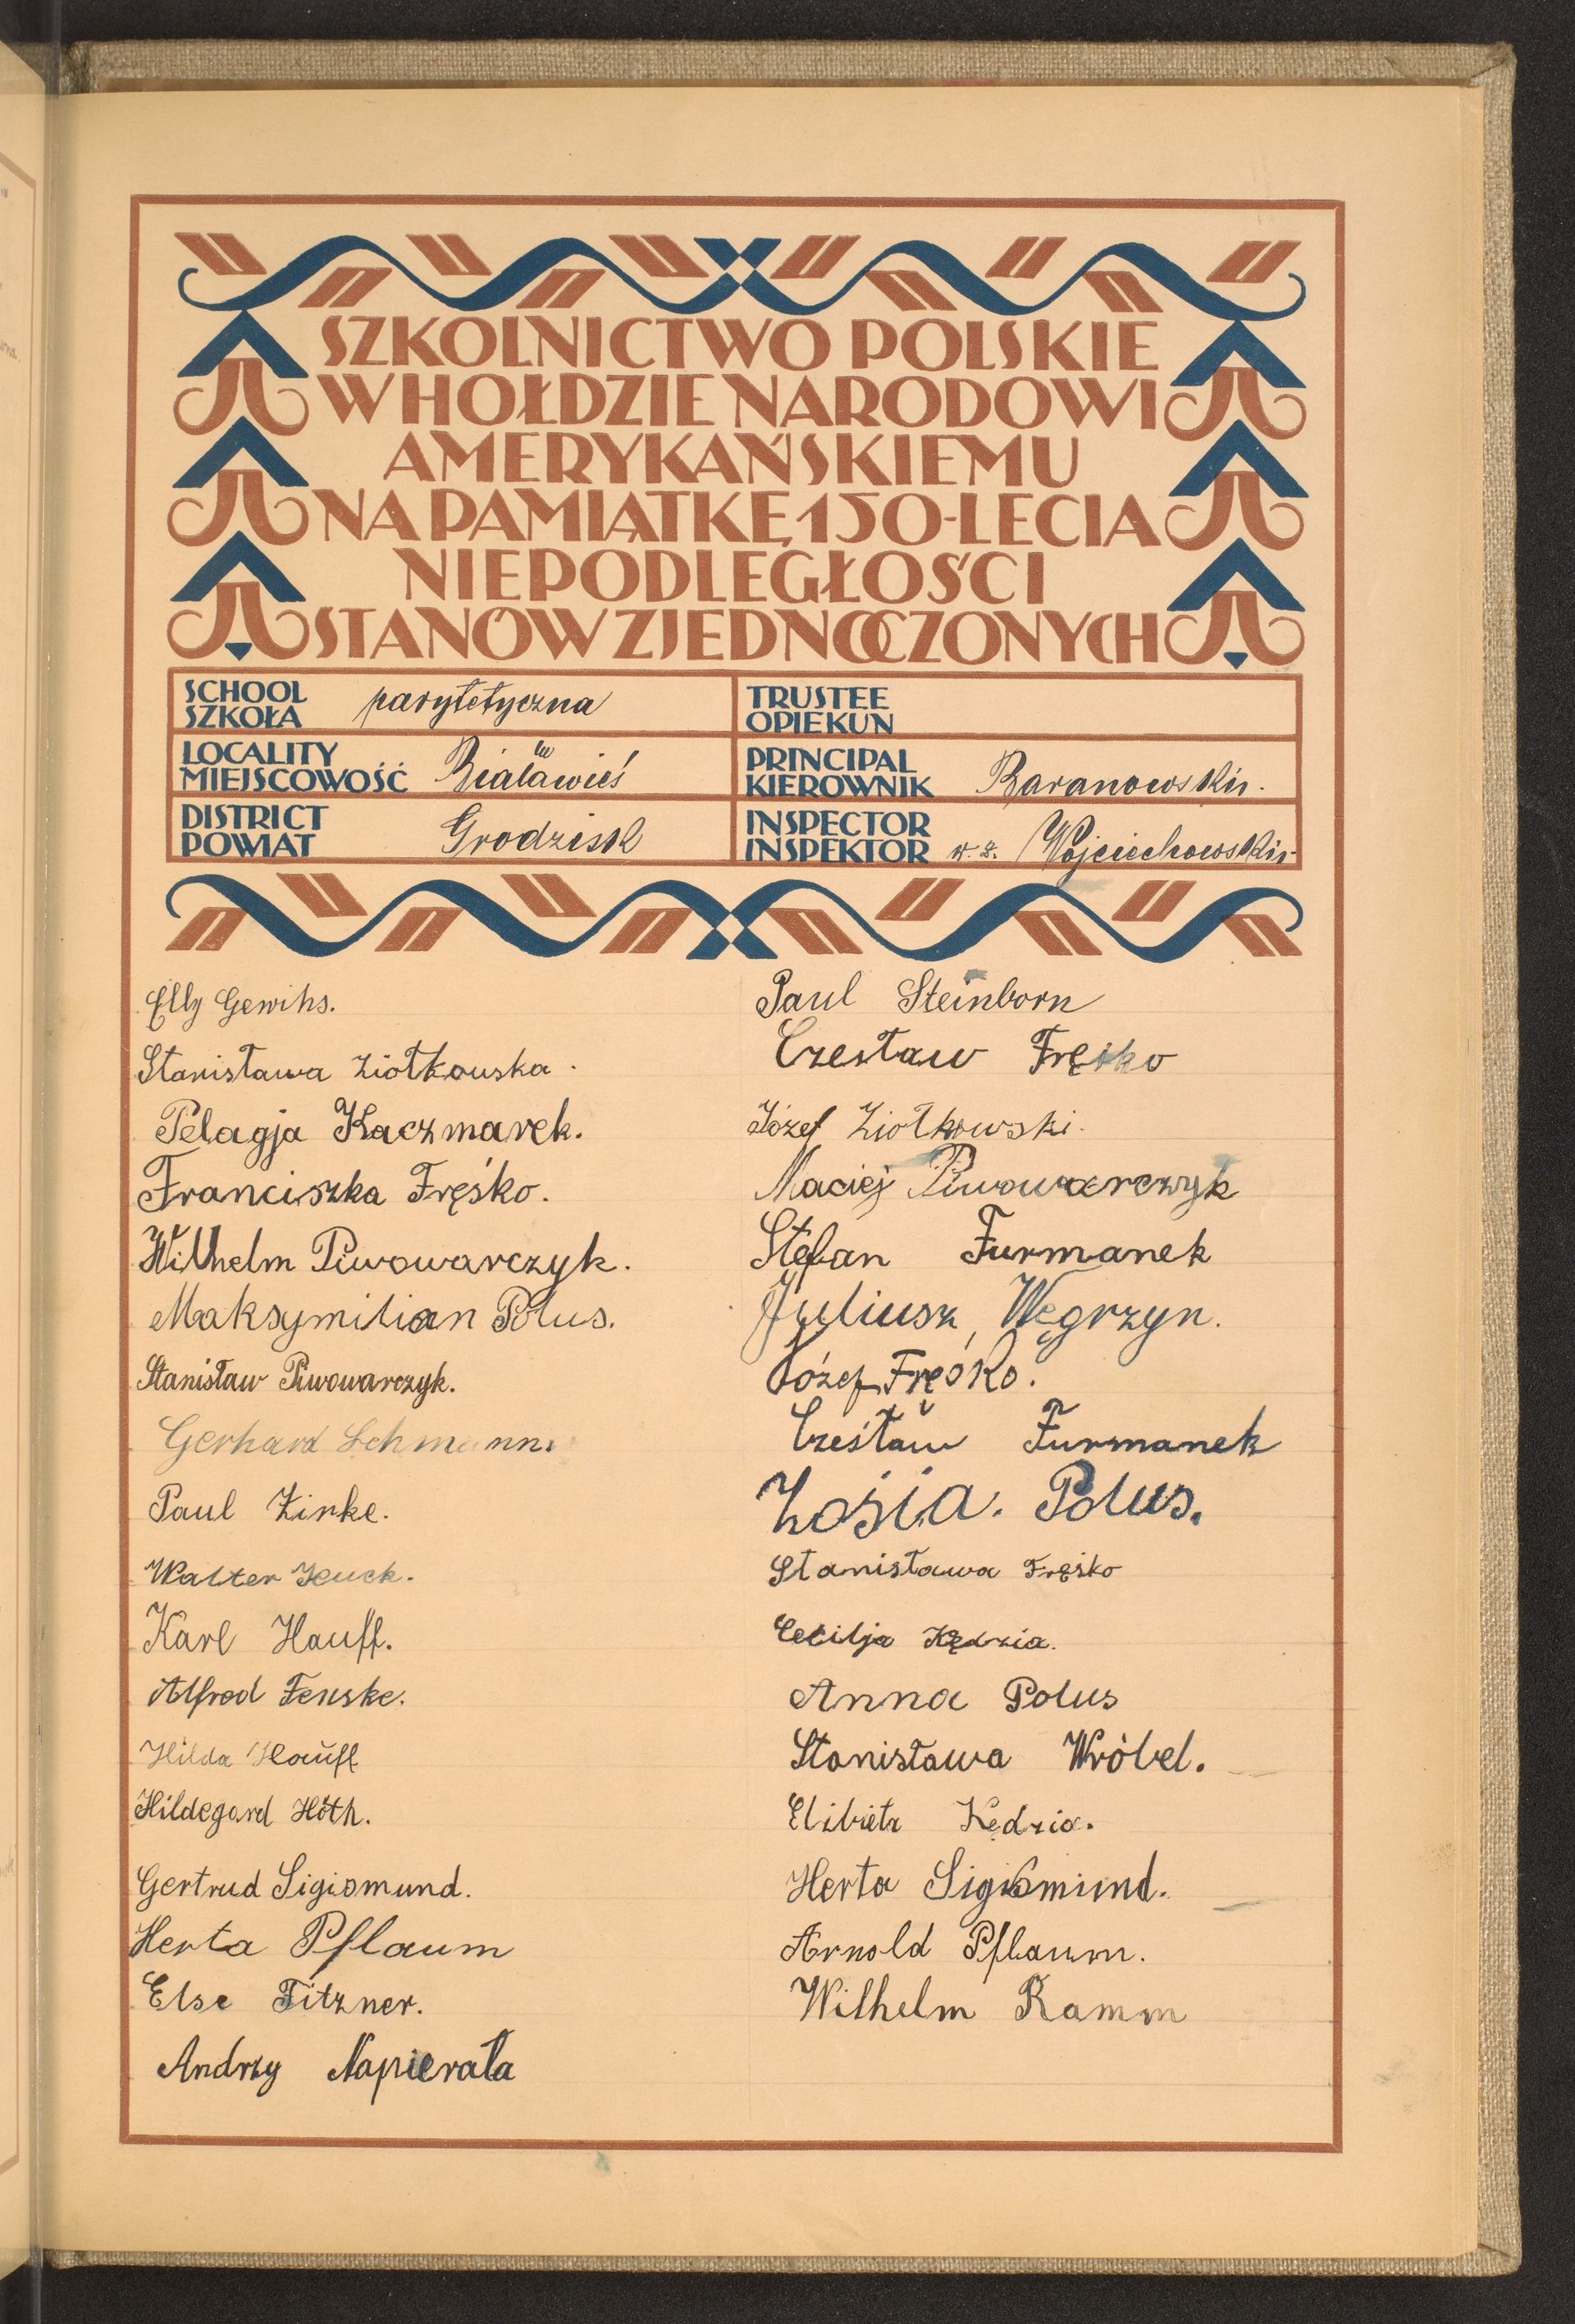 SZKOLNICTWO POLSKIE
W HOŁDZIE NARODOWI
AMERYKAŃSKIEMU
NA PAMIĄTKĘ 150-LECIA
NIEPODLEGŁOŚCI
STANÓW ZJEDNOCZONYCH
SCHOOL
SZKOŁA parytetyczna
TRUSTEE
OPIEKUN
LOCALITY
MIEJSCOWOŚĆ Białawieś
PRINCIPAL
KIEROWNIK Baranowski.
DISTRICT
POWIAT Grodzisk
INSPECTOR
INSPEKTOR w. z. Wojciechowski
Elly Gewihs.
Stanisława Ziółkowska.
Pelagja Kaczmarek.
Franciszka Fręśko.
Wilhelm Piwowarczyk.
Maksymilian Polus.
Stanisław Piwowarczyk.
Gerhard Lehmann.
Paul Zirke.
Walter Jeuck.
Karl Hauff.
Alfred Fenske.
Hilda Hauff
Hildegard Höth.
Gertrud Sigismund.
Herta Pflaum
Else Fitzner.
Andrzy Napierała
Paul Steinborn
Czesław Fręśko
Józef Ziołkowski.
Maciej Piwowarczyk
Stefan Furmanek
Juliusz, Węgrzyn.
Józef Fręśko.
Cześław Furmanek
Zośia. Polus.
Stanisława Fręśko
Cecilja Kędzia.
Anna Polus
Stanisława Wróbel.
Elżbieta Kędzia.
Herta Sigismund.
Arnold Pflaum.
Wilhelm Ramm